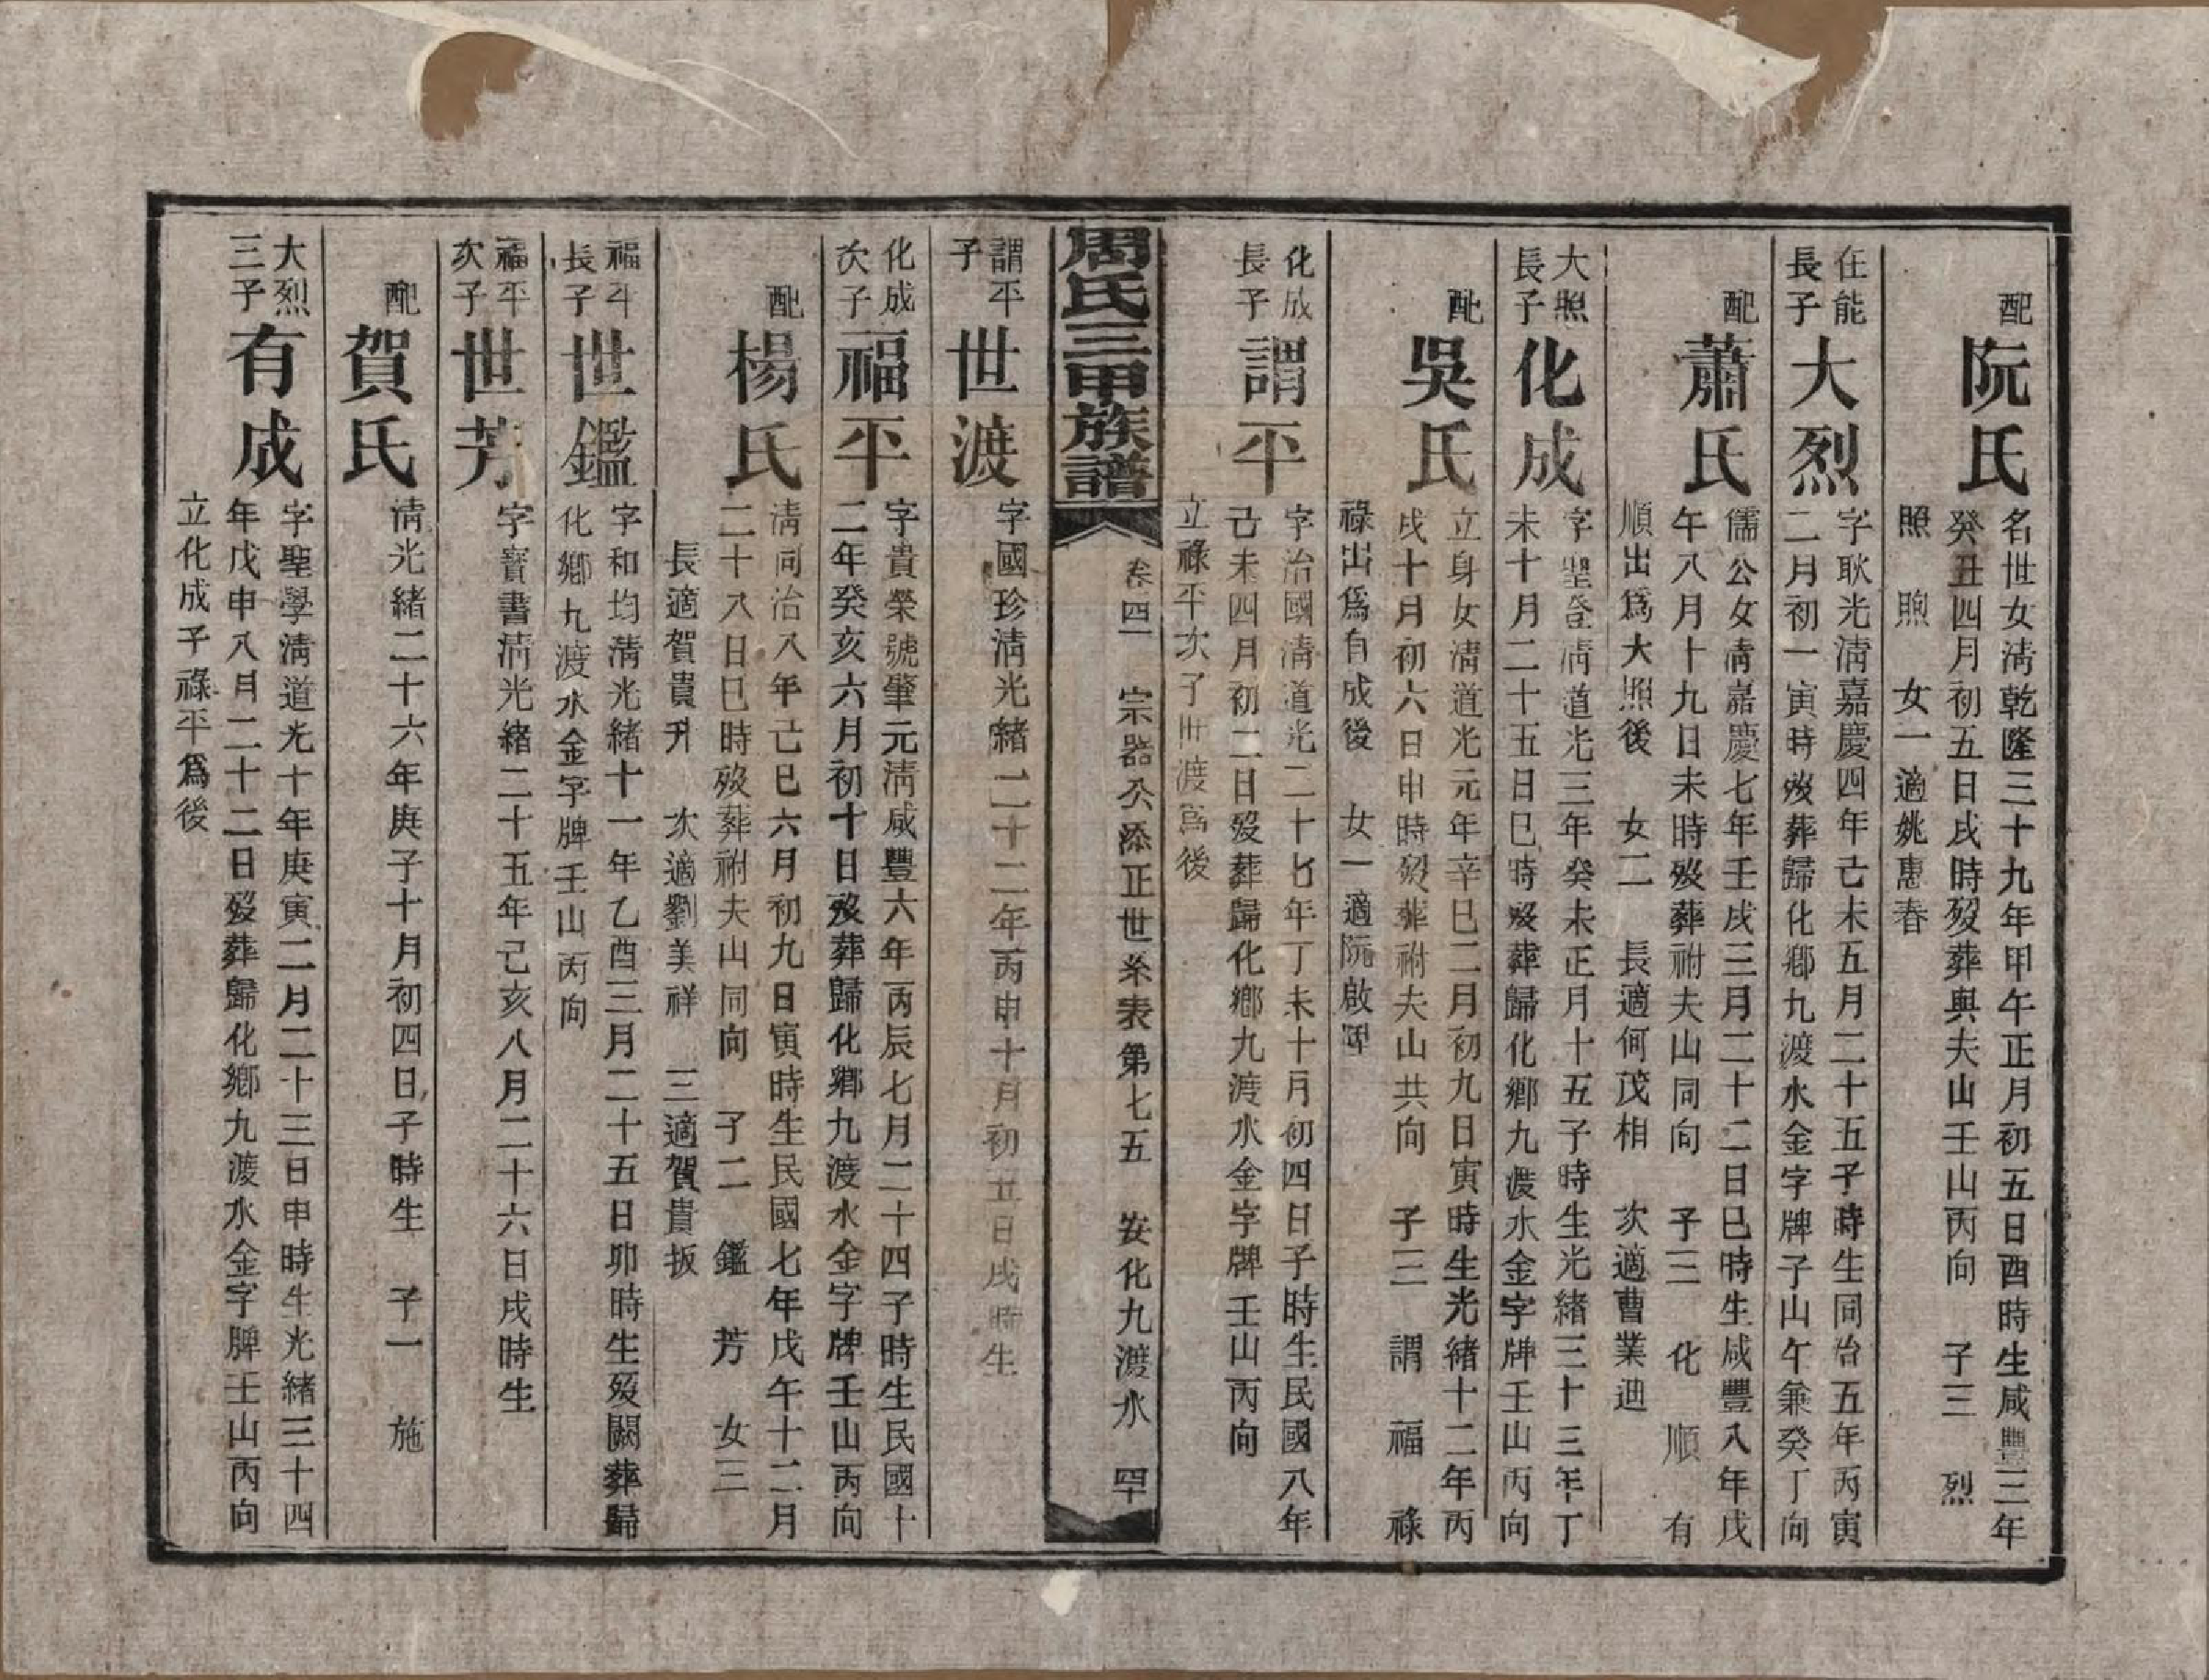 配
阮氏
名世女淸乾隆三十九年甲午正月初五日酉時生咸豐三年
癸丑四月初五日戌時歿葬與夫山壬山丙向 子三 烈
照 煦 女一適姚惠春
在能
長子
大烈
字耿光淸嘉慶四年己未五月二十五子時生同治五年丙寅
二月初一寅時歿葬歸化鄉九渡水金字牌子山午兼癸丁向
配
蕭氏
儒公女淸嘉慶七年壬戌三月二十二日巳時生咸豐八年戊
午八月十九日未時歿葬祔夫山同向 子三 化 順 有
順出爲大照後 女二 長適何茂相 次適曹業迪
大照
長子
化成
字聖 淸道光三年癸未正月十五子時生光緖三十三年丁
未十月二十五日巳時歿葬歸化鄉九渡水金字牌壬山丙向
配
吳氏
立身女淸道光元年辛巳二月初九日寅時生光緖十二年丙
戌十月初六日申時歿葬祔夫山共向 子三 謂 福 祿
祿出爲自成後 女一適阮啟
化成
長子
謂平
字治國淸道光二十七年丁未十月初四日子時生民國八年
己未四月初二日歿葬歸化鄉九渡水金字牌壬山丙向
立祿平次子世渡爲後
周氏三甲族譜
卷四 宗器公添正世系表第七五 安化九渡水 罕
謂平
子
世渡
字國珍淸光緖二十二年丙申十月初五日戌時生
化成
次子
福平
字貴榮號肇元淸咸豐六年丙辰七月二十四子時生民國十
二年癸亥六月初十日歿葬歸化鄉九渡水金字牌壬山丙向
配
楊氏
淸同治八年己巳六月初九日寅時生民國七年戊午十二月
二十八日巳時歿葬祔夫山同向 子二 鑑 芳 女三
長適賀貴升 次適劉美祥 三適賀貴扳
福平
長子
世鑑
字和均淸光緖十一年乙酉三月二十五日卯時生歿闕葬歸
化鄉九渡水金字牌壬山丙向
福平
次子
世芳
字寶書淸光緖二十五年己亥八月二十六日戌時生
配
賀氏
淸光緖二十六年庚子十月初四日子時生 子一 施
大烈
三子
有成
字聖學淸道光十年庚寅二月二十三日申時生光緖三十四
年戊申八月二十二日歿葬歸化鄉九渡水金字牌壬山丙向
立化成子祿平爲後